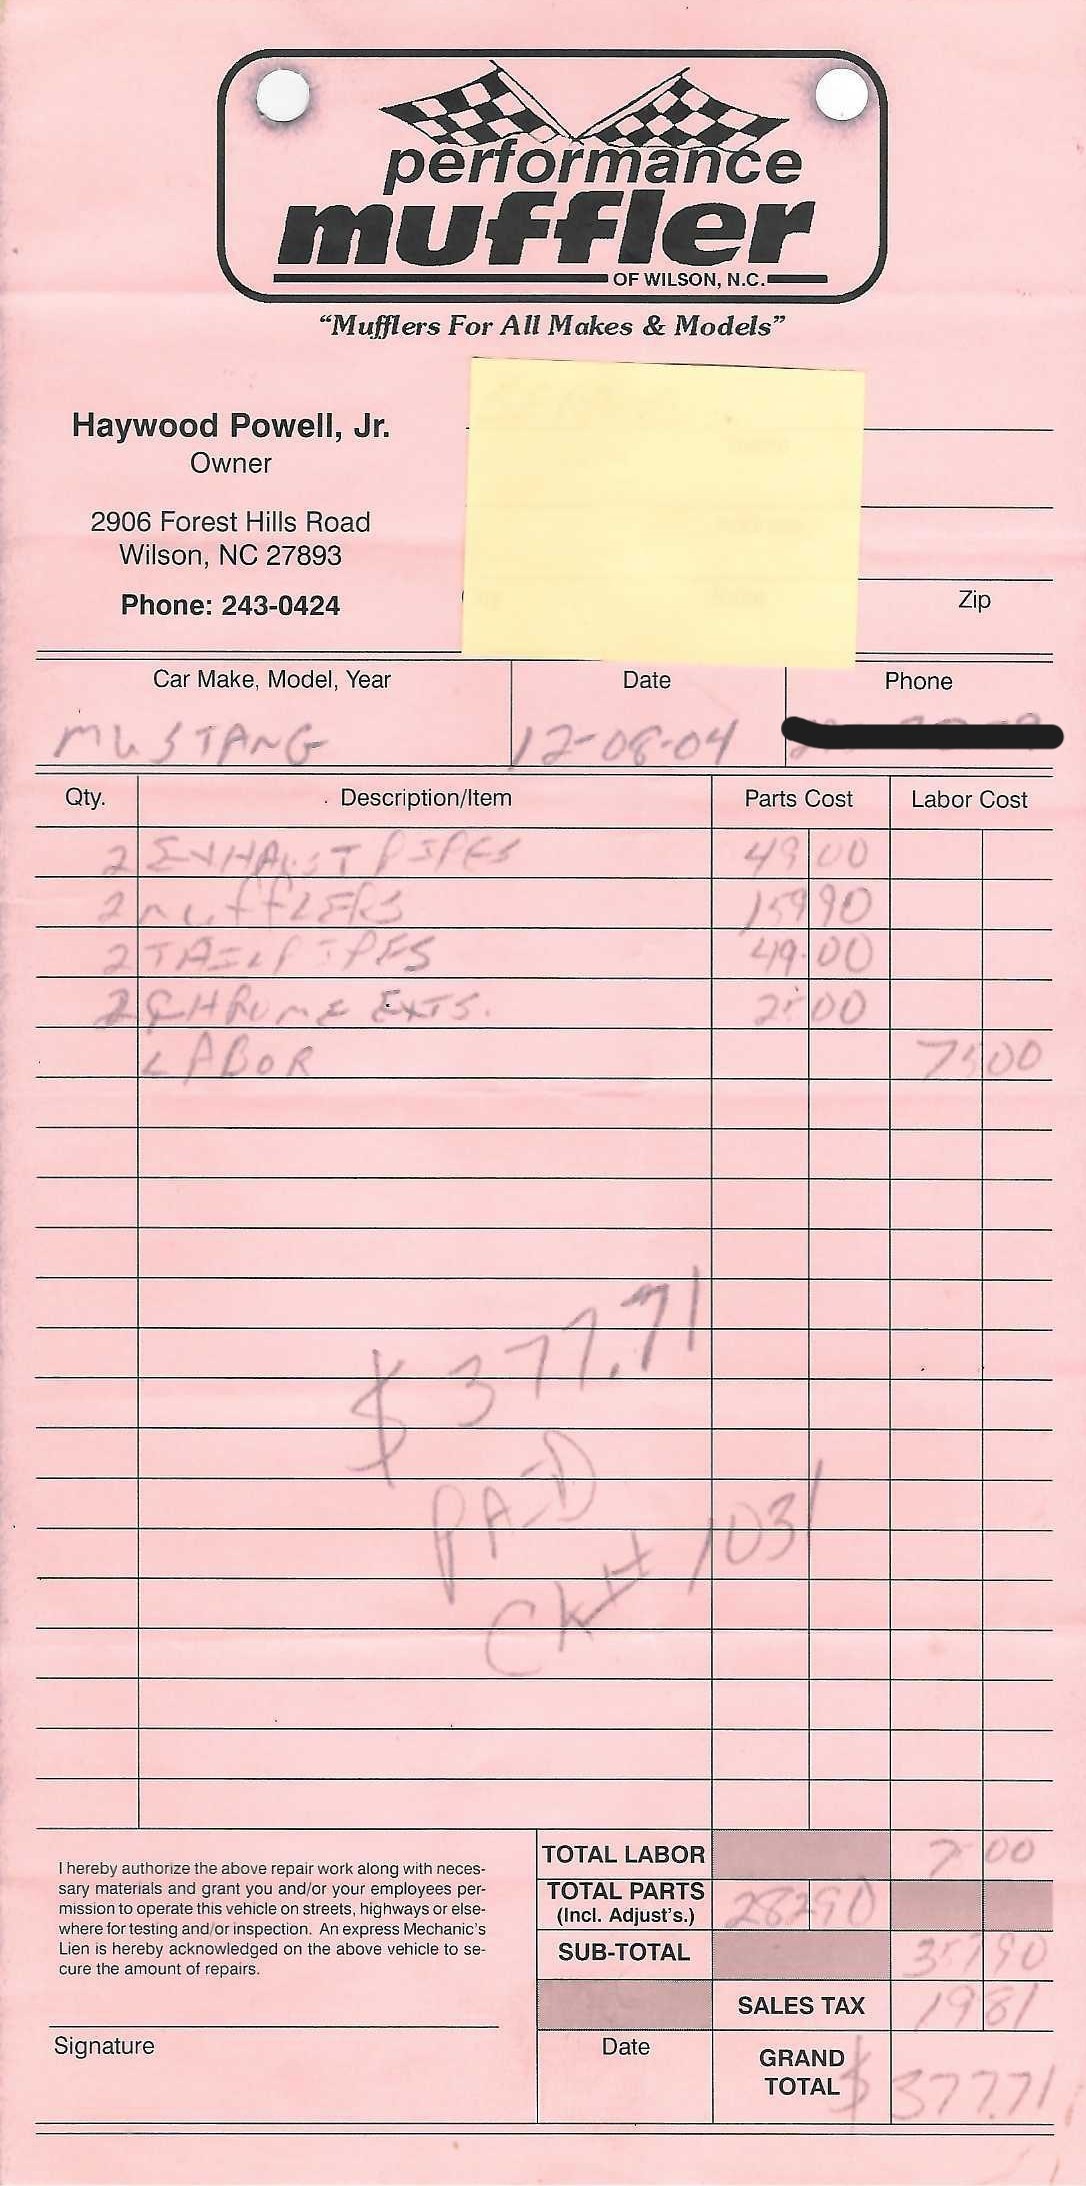 performance
muffler
OF WILSON, N.C.
“Mufflers For All Makes & Models”
Haywood Powell, Jr.
Owner
2906 Forest Hills Road
Wilson, NC 27893
Phone: 243-0424
Zip
Car Make, Model, Year Date Phone
MUSTANG 12-08-04
Qty. Description/Item Parts Cost Labor Cost
2 EXHAUST PIPES 49 00
2 MUFFLERS 159 90
2 TAILPIPES 49.00
2 CHROME EXTS. 25 00
LABOR 75 00
$377.71
PAID
CK# 1031
TOTAL LABOR 75 00
TOTAL PARTS
(Incl. Adjust's.) 282 90
SUB-TOTAL 357 90
SALES TAX 19 81
GRAND
TOTAL $377.71
I hereby authorize the above repair work along with neces-
sary materials and grant you and/or your employees per-
mission to operate this vehicle on streets, highways or else-
where for testing and/or inspection. An express Mechanic's
Lien is hereby acknowledged on the above vehicle to se-
cure the amount of repairs.
Signature Date